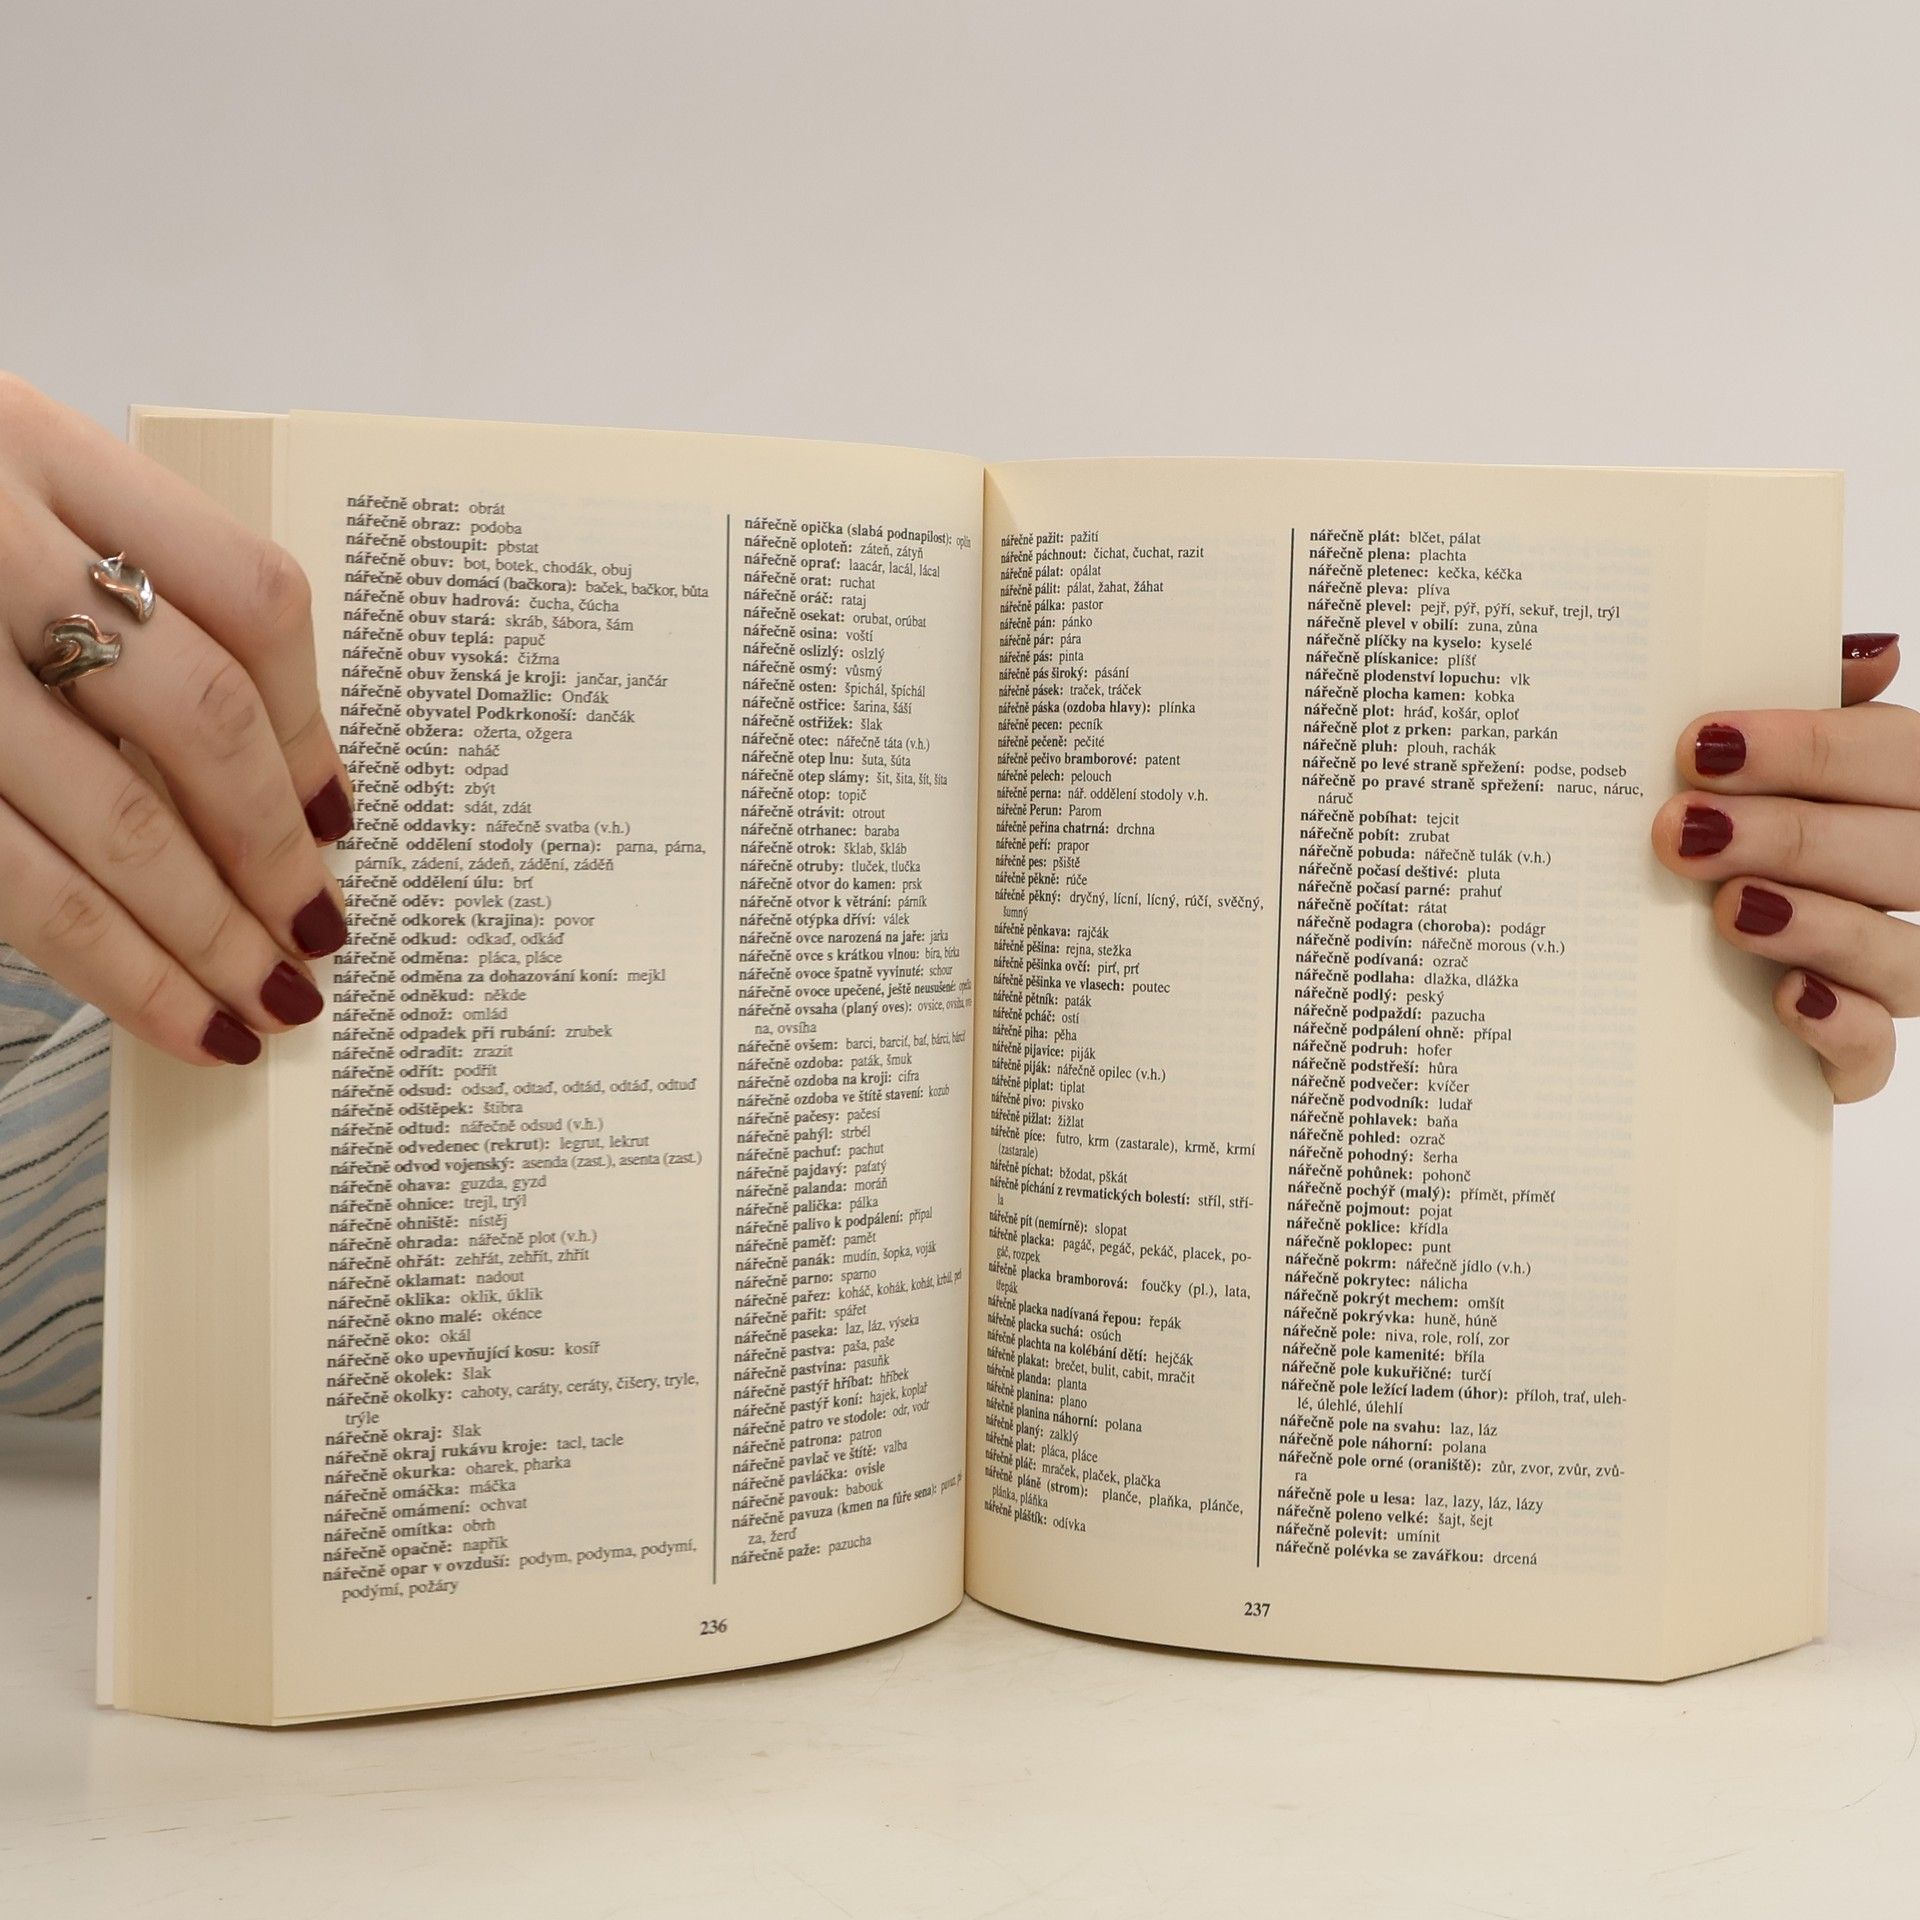 nářečně obrat: obrát
nářečně obraz: podoba
nářečně obstoupit: pbstat
nářečně obuv: bot, botek, chodák, obuj
nářečně obuv domácí (bačkora): baček, bačkor, bůta
nářečně obuv hadrová: čucha, čúcha
nářečně obuv stará: skráb, šábora, šám
nářečně obuv teplá: papuč
nářečně obuv vysoká: čižma
nářečně obuv ženská je kroji: jančar, jančár
nářečně obyvatel Domažlic: Onďák
nářečně obyvatel Podkrkonoší: dančák
nářečně obžera: ožerta, ožgera
nářečně ocún: naháč
nářečně odbyt: odpad
nářečně odbýt: zbýt
nářečně oddat: sdát, zdát
nářečně oddavky: nářečně svatba (v.h.)
nářečně oddělení stodoly (perna): parna, párna,
párník, zádení, zádeň, zádění, záděň
nářečně oddělení úlu: brť
nářečně oděv: povlek (zast.)
nářečně odkorek (krajina): povor
nářečně odkud: odkaď, odkáď
nářečně odměna: pláca, pláce
nářečně odměna za dohazování koní: mejkl
nářečně odněkud: někde
nářečně odnož: omlád
nářečně odpadek při rubání: zrubek
nářečně odradit: zrazit
nářečně odřít: podřít
nářečně odsud: odsaď, odtaď, odtád, odtáď, odtuď
nářečně odštěpek: štibra
nářečně odtud: nářečně odsud (v.h.)
nářečně odvedenec (rekrut): legrut, lekrut
nářečně odvod vojenský: asenda (zast.), asenta (zast.)
nářečně ohava: guzda, gyzd
nářečně ohnice: trejl, trýl
nářečně ohniště: nístěj
nářečně ohrada: nářečně plot (v.h.)
nářečně ohřát: zehřát, zehřít, zhřít
nářečně oklamat: nadout
nářečně oklika: oklik, úklik
nářečně okno malé: okénce
nářečně oko: okál
nářečně oko upevňující kosu: kosíř
nářečně okolek: šlak
nářečně okolky: cahoty, caráty, ceráty, čišery, tryle,
trýle
nářečně okraj: šlak
nářečně okraj rukávu kroje: tacl, tacle
nářečně okurka: oharek, pharka
nářečně omáčka: máčka
nářečně omámení: ochvat
nářečně omítka: obrh
nářečně opačně: napřík
nářečně opar v ovzduší: podym, podyma, podymí,
podýmí, požáry
236
nářečně opička (slabá podnapilost):
nářečně oploteň: záteň, zátyň
nářečně oprať: laacár, lacál, lácal
nářečně orat: ruchat
nářečně oráč: rataj
nářečně osekat: orubat, orúbat
nářečně osina: voští
nářečně oslizlý: oslzlý
nářečně osmý: vůsmý
nářečně osten: špichál, špíchál
nářečně ostřice: šarina, šáší
nářečně ostřižek: šlak
nářečně otec: nářečně táta (v.h.)
nářečně otep lnu: šuta, šúta
nářečně otep slámy: šit, šita, šít, šíta
nářečně otop: topič
nářečně otrávit: otrout
nářečně otrhanec: baraba
nářečně otrok: šklab, škláb
nářečně otruby: tluček, tlučka
nářečně otvor do kamen: prsk
nářečně otvor k větrání: párník
nářečně otýpka dříví: válek
nářečně ovce narozená na jaře: jarka
nářečně ovce s krátkou vlnou: bíra, bírka
nářečně ovoce špatně vyvinuté: schour
nářečně ovoce upečené, ještě neusušené:
nářečně ovsaha (planý oves): ovsice, ovsiha,
na, ovsíha
nářečně ovšem: barci, barciť, bať, bárci, bárciť
nářečně ozdoba: paták, šmuk
nářečně ozdoba na kroji: cifra
nářečně ozdoba ve štítě stavení: kozub
nářečně pačesy: pačesí
nářečně pahýl: strběl
nářečně pachuť: pachut
nářečně pajdavý: paťatý
nářečně palanda: moráň
nářečně palička: pálka
nářečně palivo k podpálení: přípal
nářečně paměť: pamět
nářečně panák: mudín, šopka, voják
nářečně parno: sparno
nářečně pařez: koháč, kohák, kohát,
nářečně pařit: spářet
nářečně paseka: laz, láz, výseka
nářečně pastva: paša, paše
nářečně pastvina: pasuňk
nářečně pastýř hříbat: hříbek
nářečně pastýř koní: hajek, koplař
nářečně patro ve stodole: odr, vodr
nářečně patrona: patron
nářečně pavlač ve štítě: valba
nářečně pavláčka: ovisle
nářečně pavouk: babouk
nářečně pavuza (kmen na fůře sena):
za, žerď
nářečně paže: pazucha
nářečně pažit: pažití
nářečně páchnout: čichat, čuchat, razit
nářečně pálat: opálat
nářečně pálit: pálat, žahat, žáhat
nářečně pálka: pastor
nářečně pán: pánko
nářečně pár: pára
nářečně pás: pinta
nářečně pás široký: pásání
nářečně pásek: traček, tráček
nářečně páska (ozdoba hlavy): plínka
nářečně pecen: pecník
nářečně pečeně: pečité
nářečně pečivo bramborové: patent
nářečně pelech: pelouch
nářečně perna: nář. oddělení stodoly v.h.
nářečně Perun: Parom
nářečně peřina chatrná: drchna
nářečně peří: prapor
nářečně pes: pšiště
nářečně pěkně: rúče
nářečně pěkný: dryčný, lícní, lícný, rúčí, svěčný,
šumný
nářečně pěnkava: rajčák
nářečně pěšina: rejna, stežka
nářečně pěšinka ovčí: pirť, prť
nářečně pěšinka ve vlasech: poutec
nářečně pětník: paták
nářečně pcháč: ostí
nářečně piha: pěha
nářečně pijavice: piják
nářečně piják: nářečně opilec (v.h.)
nářečně piplat: tiplat
nářečně pivo: pivsko
nářečně pižlat: žižlat
nářečně píce: futro, krm (zastarale), krmě, krmí
(zastarale)
nářečně píchat: bžodat, pškát
nářečně píchání z revmatických bolestí: stříl, stří-
la
nářečně pít (nemírně): slopat
nářečně placka: pagáč, pegáč, pekáč, placek, po-
gáč, rozpek
nářečně placka bramborová: foučky (pl.), lata,
třepák
nářečně placka nadívaná řepou: řepák
nářečně placka suchá: osúch
nářečně plachta na kolébání dětí: hejčák
nářečně plakat: brečet, bulit, cabit, mračit
nářečně planda: planta
nářečně planina: plano
nářečně planina náhorní: polana
nářečně planý: zalklý
nářečně plat: pláca, pláce
nářečně pláč: mraček, plaček, plačka
nářečně pláně (strom): planče, plaňka, plánče,
plánka, pláňka
nářečně pláštík: odívka
nářečně plát: blčet, pálat
nářečně plena: plachta
nářečně pletenec: kečka, kéčka
nářečně pleva: plíva
nářečně plevel: pejř, pýř, pýří, sekuř, trejl, trýl
nářečně plevel v obilí: zuna, zůna
nářečně plíčky na kyselo: kyselé
nářečně plískanice: plíšť
nářečně plodenství lopuchu: vlk
nářečně plocha kamen: kobka
nářečně plot: hráď, košár, oploť
nářečně plot z prken: parkan, parkán
nářečně pluh: plouh, rachák
nářečně po levé straně spřežení: podse, podseb
nářečně po pravé straně spřežení: naruc, náruc,
náruč
nářečně pobíhat: tejcit
nářečně pobít: zrubat
nářečně pobuda: nářečně tulák (v.h.)
nářečně počasí deštivé: pluta
nářečně počasí parné: prahuť
nářečně počítat: rátat
nářečně podagra (choroba): podágr
nářečně podivín: nářečně morous (v.h.)
nářečně podívaná: ozrač
nářečně podlaha: dlažka, dlážka
nářečně podlý: peský
nářečně podpaždí: pazucha
nářečně podpálení ohně: přípal
nářečně podruh: hofer
nářečně podstřeší: hůra
nářečně podvečer: kvíčer
nářečně podvodník: ludař
nářečně pohlavek: baňa
nářečně pohled: ozrač
nářečně pohodný: šerha
nářečně pohůnek: pohonč
nářečně pochýř (malý): přímět, příměť
nářečně pojmout: pojat
nářečně poklice: křídla
nářečně poklopec: punt
nářečně pokrm: nářečně jídlo (v.h.)
nářečně pokrytec: nálicha
nářečně pokrýt mechem: omšít
nářečně pokrývka: huně, húně
nářečně pole: niva, role, rolí, zor
nářečně pole kamenité: bříla
nářečně pole kukuřičné: turčí
nářečně pole ležící ladem (úhor): příloh, trať, uleh-
lé, úlehlé, úlehlí
nářečně pole na svahu: laz, láz
nářečně pole náhorní: polana
nářečně pole orné (oraniště): zůr, zvor, zvůr, zvů-
ra
nářečně pole u lesa: laz, lazy, láz, lázy
nářečně poleno velké: šajt, šejt
nářečně polevit: umínit
nářečně polévka se zavářkou: drcená
237